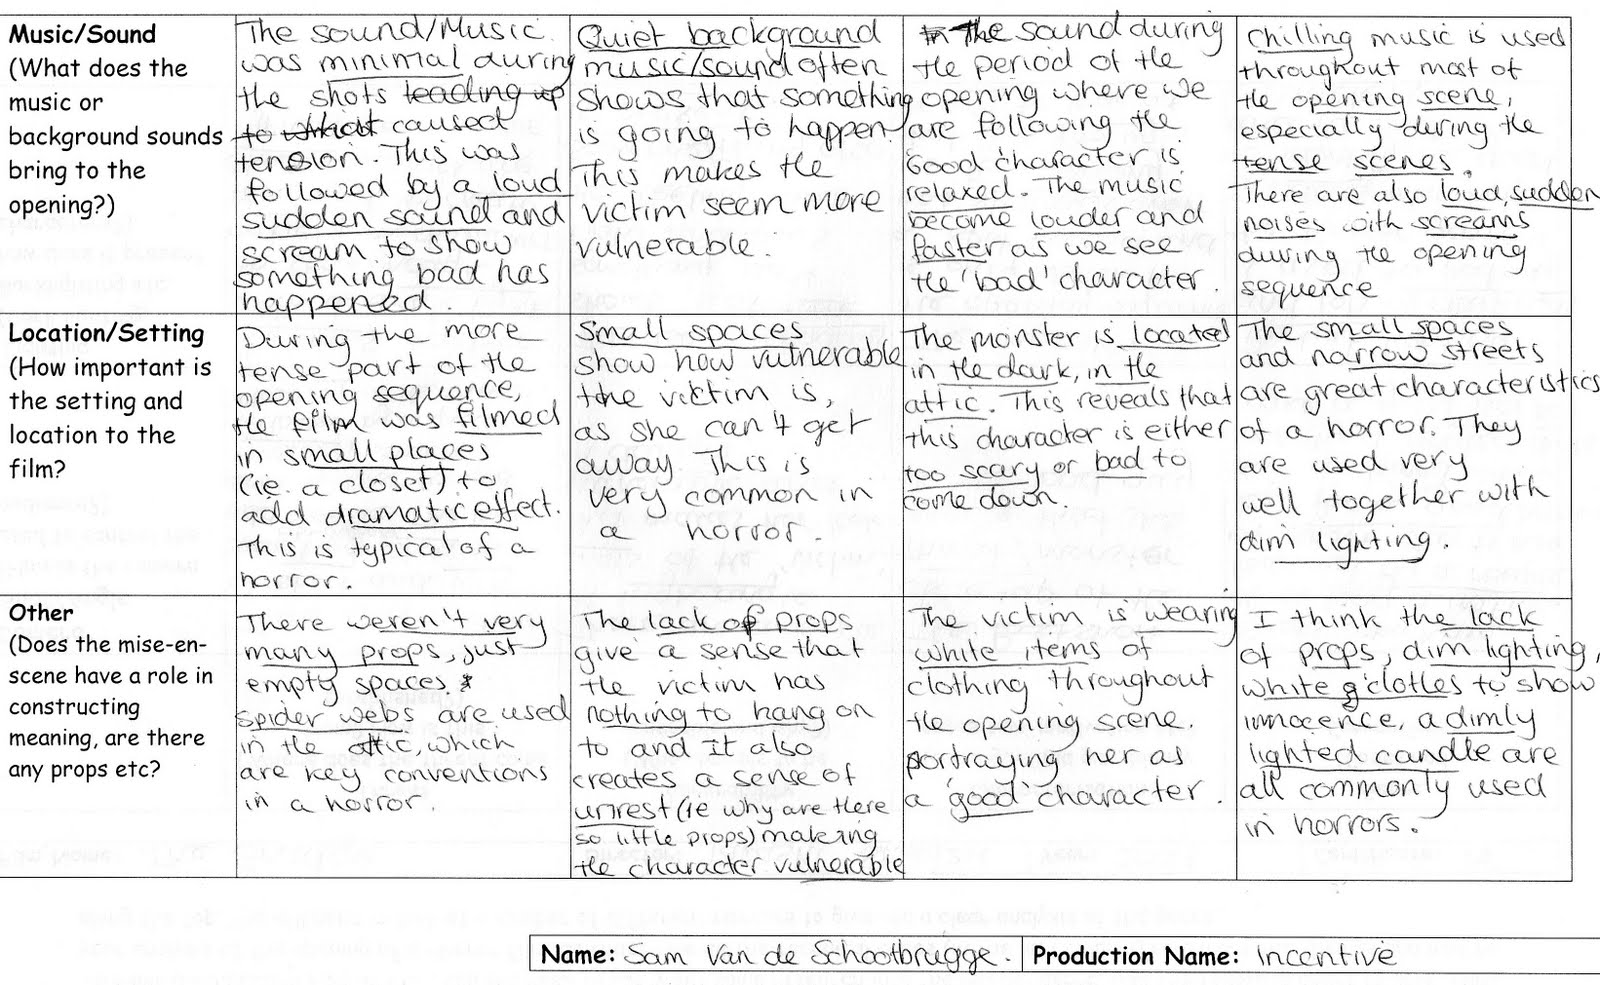 Music/Sound
(What does the
music or
background sounds
bring to the
opening?)
The sound/Music.
was minimal during
the shots leading up
to caused
tension. This was
followed by a loud
sudden sound and
scream to show
something bad has
happened.
Quiet background
music/sound often
shows that something
is going to happen
This makes the
victim seem more
vulnerable.
The sound during
the period of the
opening where we
are following the
Good character is
relaxed. The music
become louder and
faster as we see
the 'bad' character.
Chilling music is used
throughout most of
the opening scene,
especially during the
tense scenes.
There are also loud, sudden
noises with screams
during the opening
sequence
Location/Setting
(How important is
the setting and
location to the
film?
During the more
tense part of the
opening sequence,
the film was filmed
in small places
(ie. a closet) to
add dramatic effect.
This is typical of a
horror.
Small spaces
show how vulnerable
the victim is,
as she can't get
away. This is
very common in
a horror.
The monster is located
in the dark, in the
attic. This reveals that
this character is either
too scary or bad to
come down
The small spaces
and narrow streets
are great characteristics
of a horror. They
are used very
well together with
dim lighting.
Other
(Does the mise-en-
scene have a role in
constructing
meaning, are there
any props etc?
There weren't very
many props, just
empty spaces.
spider webs are used
in the attic, which
are key conventions
in a horror.
The lack of props
give a sense that
the victim has
nothing to hang on
to and It also
creates a sense of
unrest (ie why are there
so little props) making
the character vulnerable
The victim is wearing
white items of
clothing throughout
the opening scene.
portraying her as
a good character.
I think the lack
of props, dim lighting,
white clotles to show
innocence, a dimly
lighted candle are
all commonly used
in horrors.
Name: Sam Van de Schootbrugge.
Production Name: Incentive